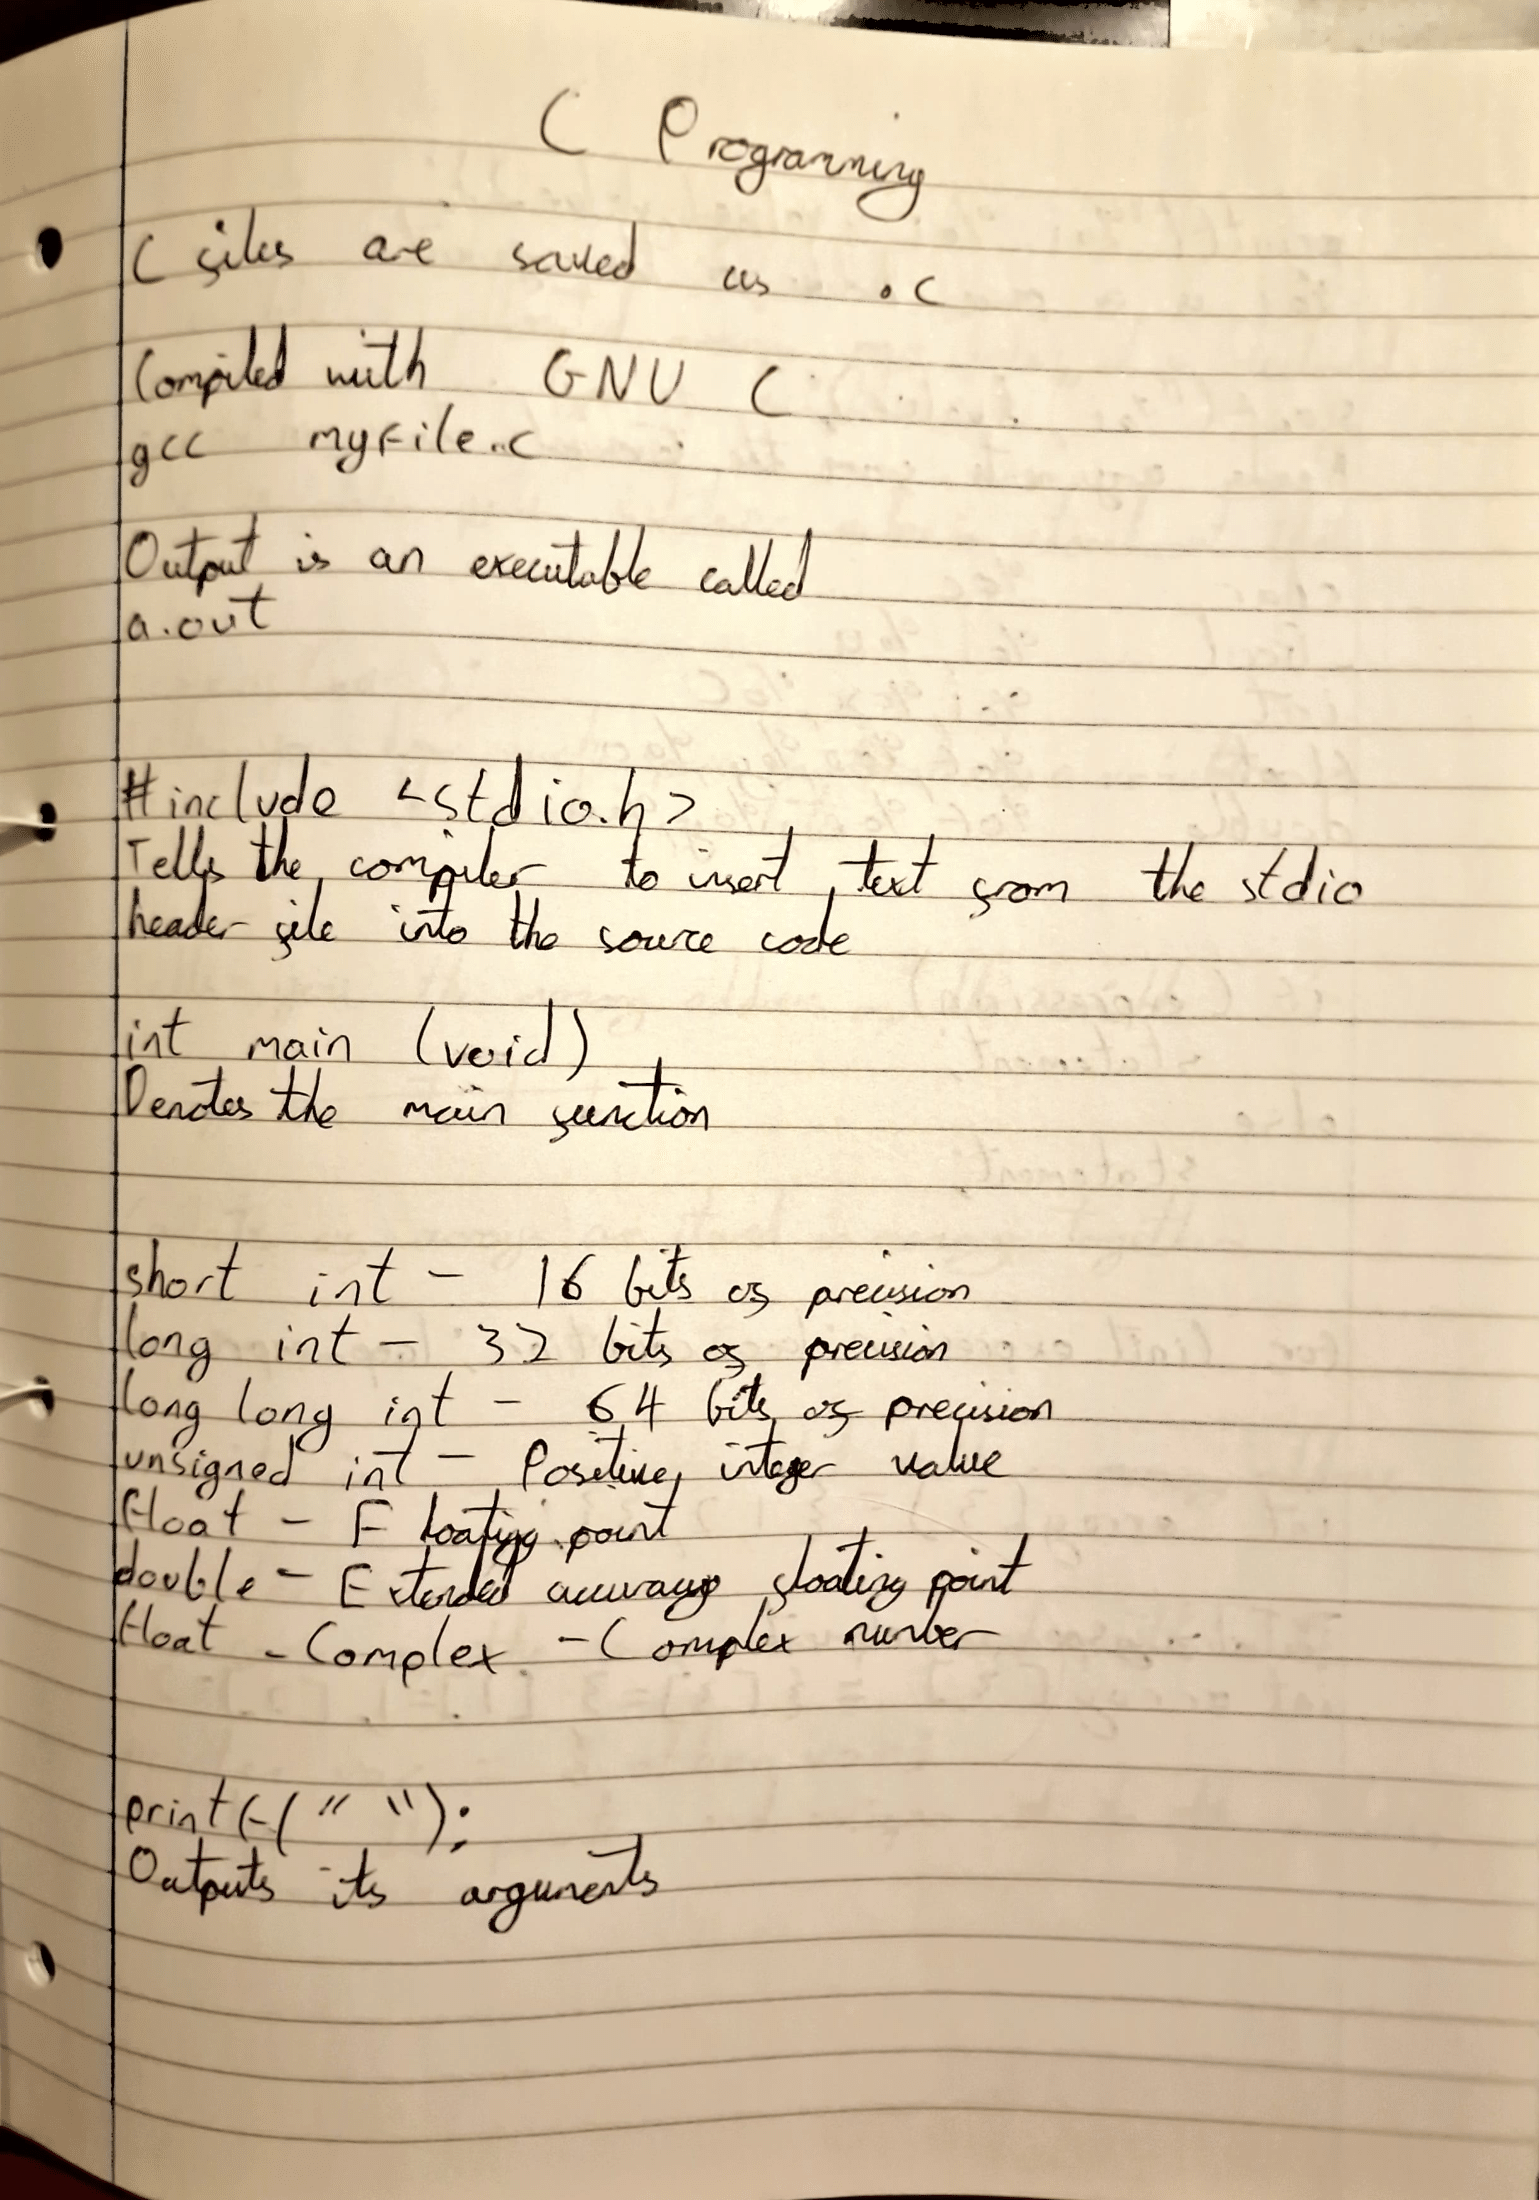 C Programming
C files are saved as .c
Compiled with GNU C
gcc myfile.c
Output is an executable called
a.out
#include <stdio.h>
Tells the compiler to insert text from the stdio
header file into the source code
int main (void)
Denotes the main function
short int - 16 bits of precision
long int - 32 bits of precision
long long int - 64 bits of precision
unsigned int - Positive integer value
float - Floating point
double - Extended accuracy floating point
float _Complex - Complex number
printf(" ");
Outputs its arguments